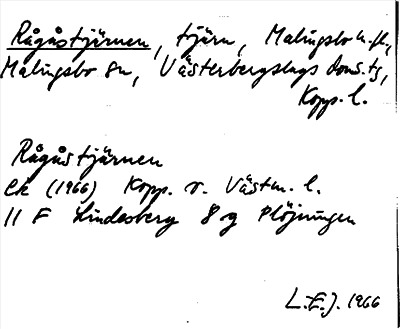 Rågåstjärnen, tjärn, Malingsbo u. fl.,
Malingsbo sn, Västerbergslags doms. tg,
Kopp. l.
Rågåstjärnen
Ek (1966) Kopp. o. Västm. l.
11 F Lindesberg 8 g Plöjningen
L.E.J. 1966